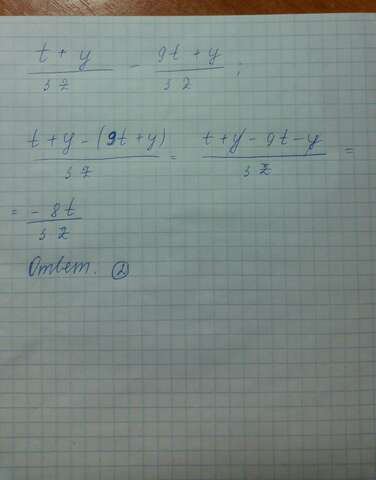 (t + y)/(3z) - (9t + y)/(3z);
(t + y - (9t + y))/(3z) = (t + y - 9t - y)/(3z) =
= (-8t)/(3z)
Ответ. ②